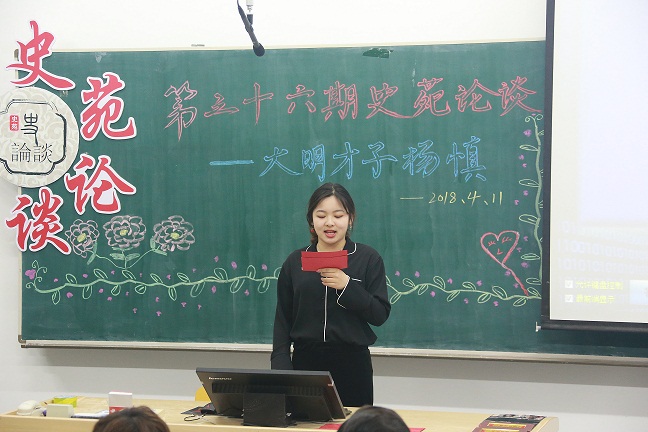 史苑论谈
史
論談
第三十六期史苑论谈
—大明才子杨慎
—2018.4.11
lenovo